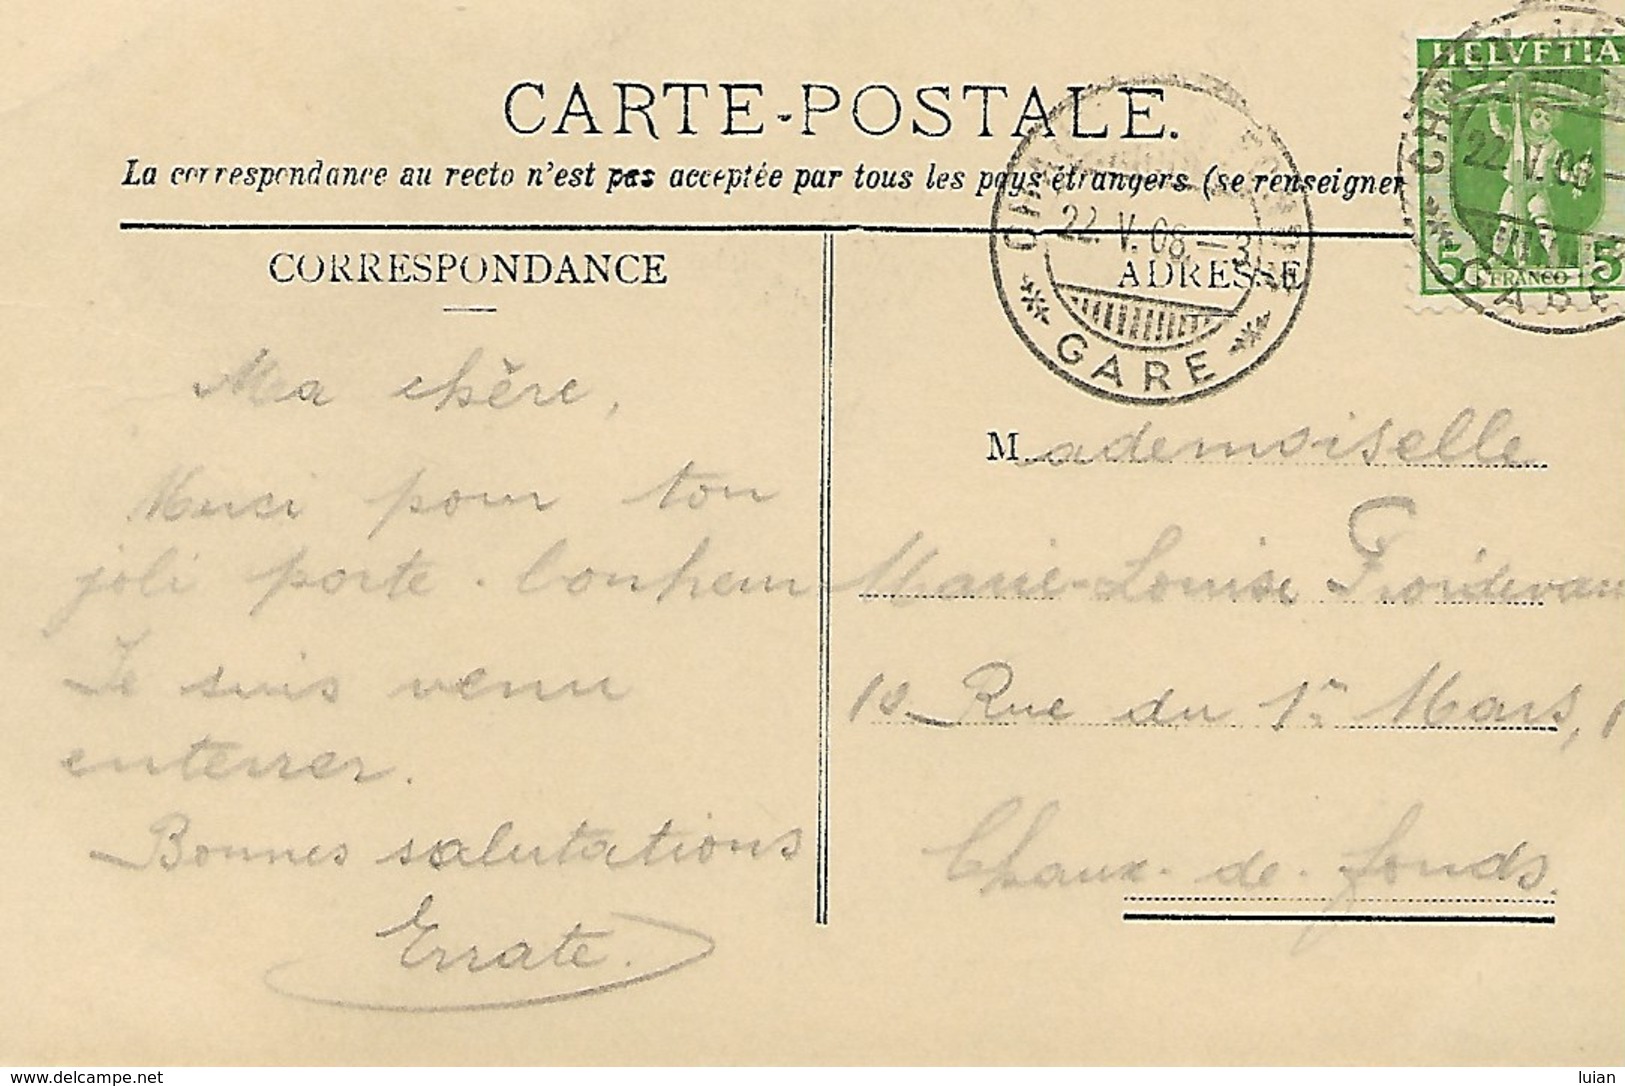 CARTE-POSTALE.
La correspondance au recto n'est pas acceptée par tous les pays étrangers (se renseigner
CORRESPONDANCE
ADRESSE
HELVETIA
5 FRANCO 5
22. V. 08.-3
GARE
22. V. 08
GARE
Ma chère,
Merci pour ton
joli porte-bonheur
Je suis venu
enterrer.
Bonnes salutations
Errate.
Mademoiselle
Marie-Louise Froidevaux
10 Rue du 1er Mars, 1
Chaux-de-fonds.
www.delcampe.net
luian